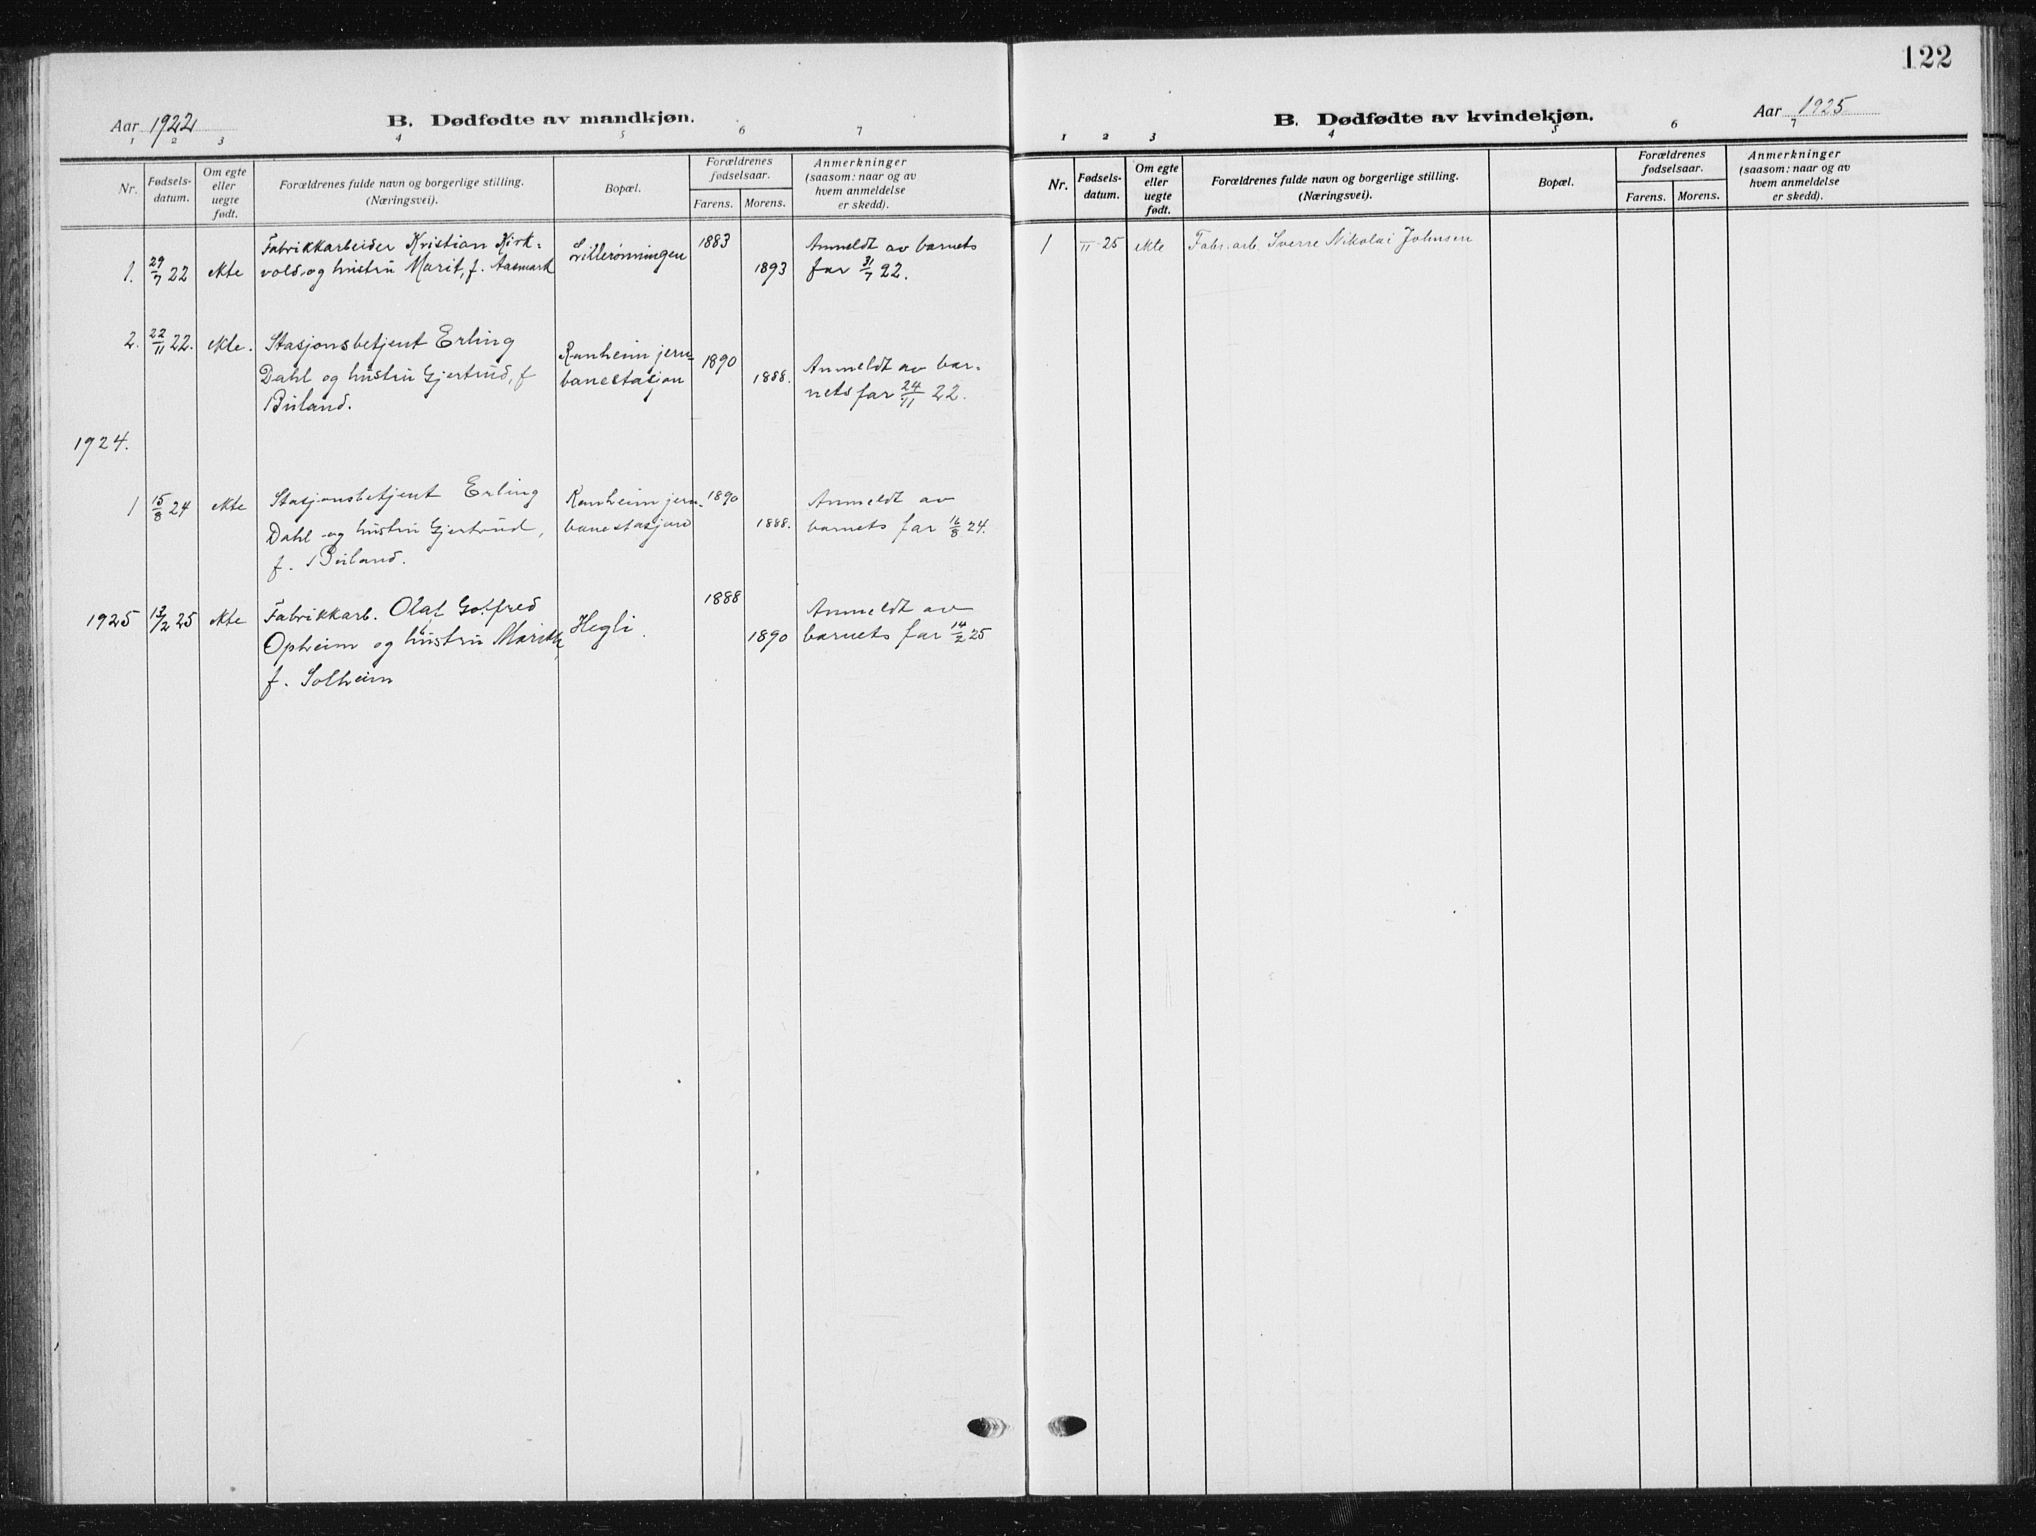 122
Aar 1922
B. Dødfødte av mandkjøn.
1 2 3 4 5 6 7
Nr.
Fødsels-
datum.
Om egte
eller
uegte
født.
Forældrenes fulde navn og borgerlige stilling.
(Næringsvei).
Bopæl.
Forældrenes
fødselsaar.
Farens. Morens.
Anmerkninger
(saasom: naar og av
hvem anmeldelse
er skedd).
1. 29/7 22 ekte
Fabrikkarbeider Kristian Kirk-
vold og hustru Marit, f. Aasmark
Lillerønningen
1883
1893
Anmeldt av barnets
far 31/7 22.
2. 22/11 22. ekte.
Stasjonsbetjent Erling
Dahl og hustru Gjertrud, f
Buland.
Ranheim jern-
banestasjon
1890
1888.
Anmeldt av bar-
nets far 24/11 22.
1924.
1 15/8 24 ekte
Stasjonsbetjent Erling
Dahl og hustru Gjertrud,
f. Buland.
Ranheim jern-
banestasjon
1890
1888.
Anmeldt av
barnets far 16/8 24.
1925 13/2 25 ekte
Fabrikkarb. Olaf Gotfred
Opheim og hustru
f. Solheim
Hegli.
1888
1890
Anmeldt av
barnets far 14/2 25
B. Dødfødte av kvindekjøn.
Aar 1925
1 2 3 4 5 6 7
Nr.
Fødsels-
datum.
Om egte
eller
uegte
født.
Forældrenes fulde navn og borgerlige stilling.
(Næringsvei).
Bopæl.
Forældrenes
fødselsaar.
Farens. Morens.
Anmerkninger
(saasom: naar og av
hvem anmeldelse
er skedd).
1 /11 25 ekte Fabr. arb. Sverre Nikolai Johnsen